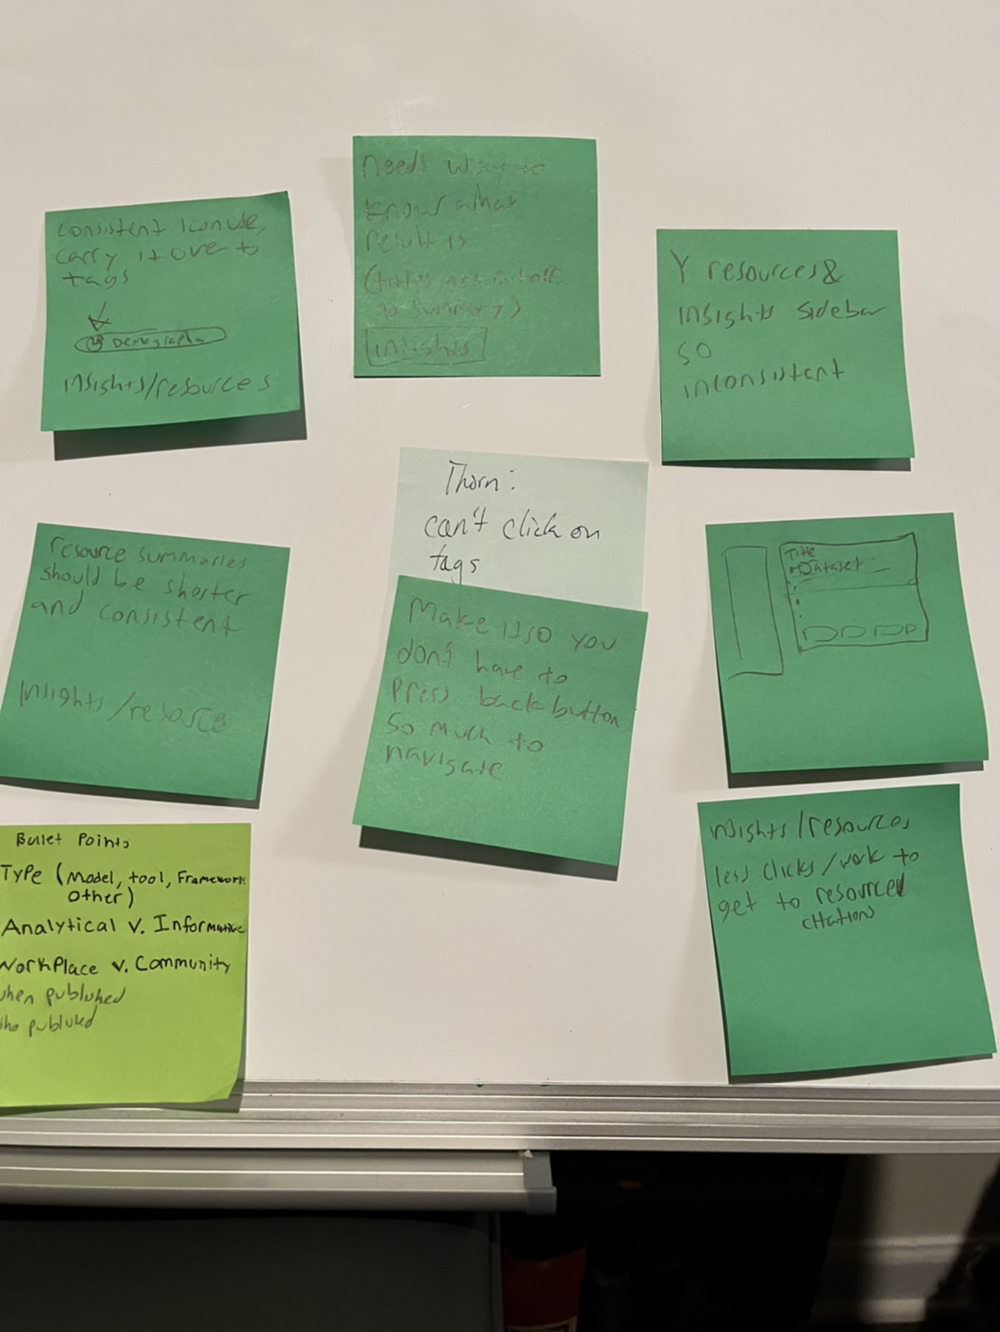 needs way to
know what
result is
(titles not
to summary)
insights
consistent icon use,
carry it over to
tags
insights/resources
Y resources &
insights sidebar
so
inconsistent
Thorn:
can't click on
tags
resource summaries
should be shorter
and consistent
Insights/resource
Make it so you
don't have to
press back button
so much to
navigate
Title
Dataset
Bullet Points
Type (Model, tool, Framework
Other)
Analytical v. Informative
WorkPlace v. Community
when published
who published
insights/resources
less clicks/work to
get to resource
citations